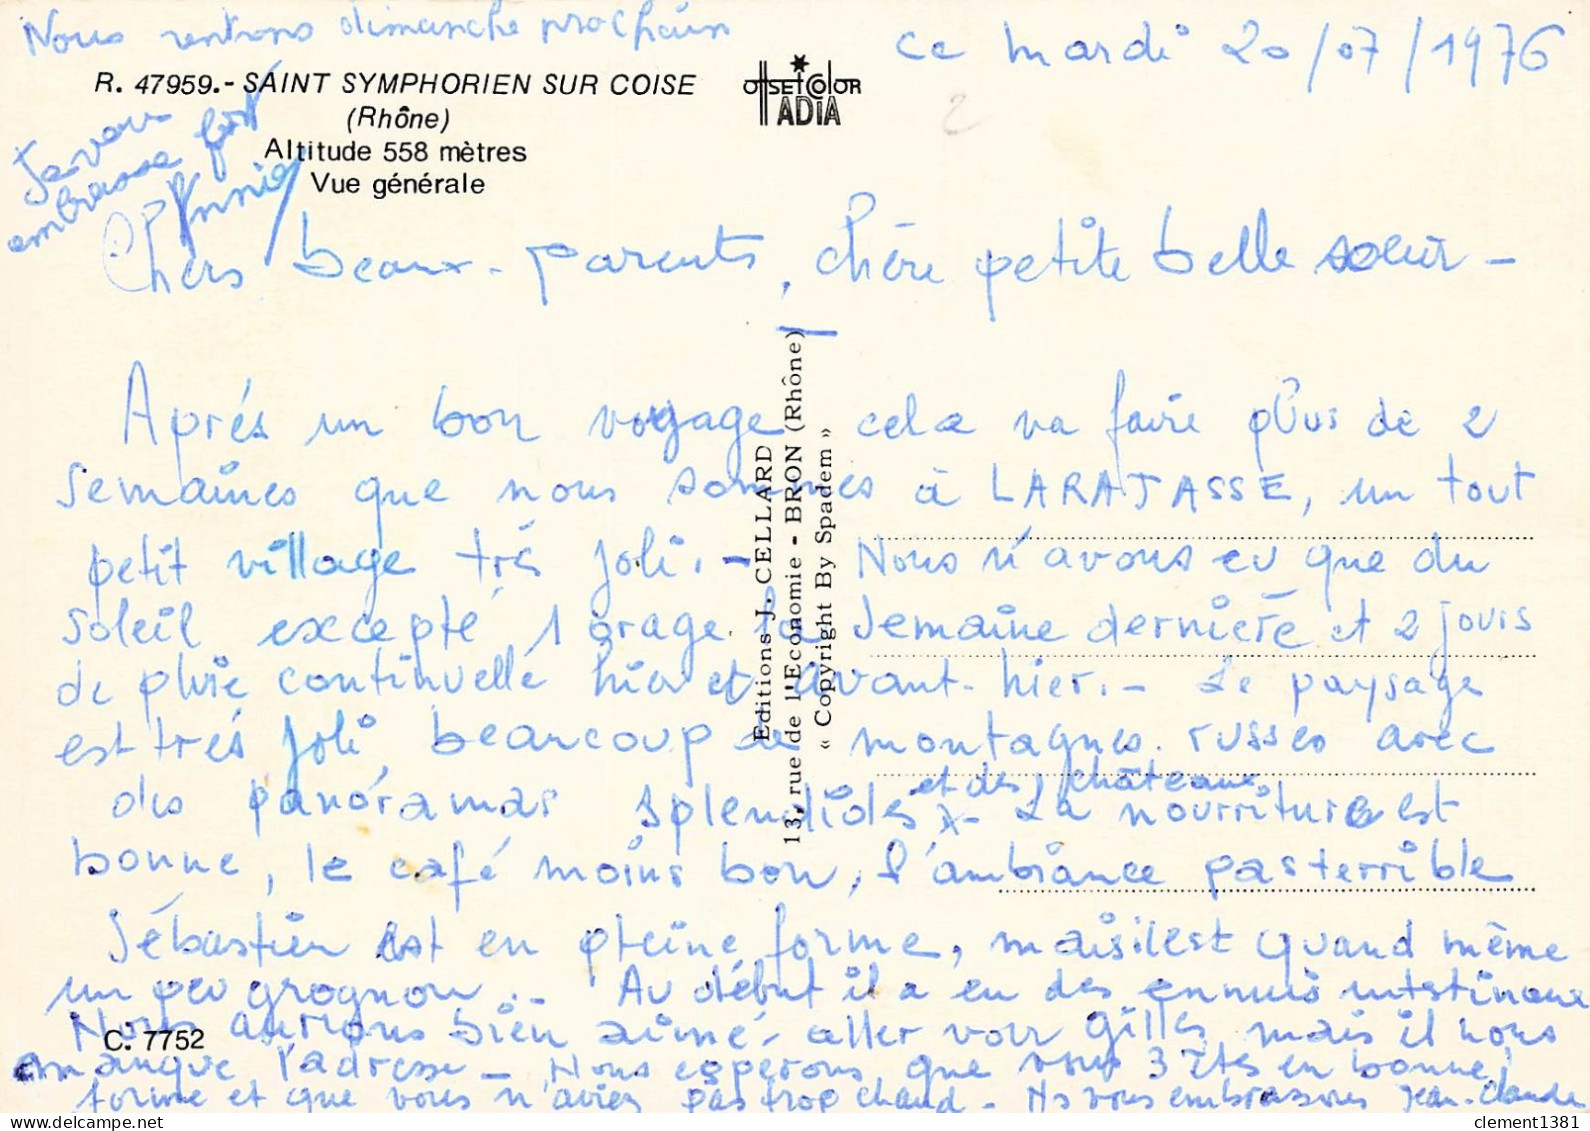 Nous rentrons dimanche prochain
ce mardi 20/07/1976
R. 47959.- SAINT SYMPHORIEN SUR COISE
(Rhône)
Altitude 558 mètres
Vue générale
OFFSET COLOR
ADIA
2
Je vous
embrasse fort
Annie
Chers beaux-parents, chère petite belle sœur -
Après un bon voyage cela va faire plus de 2
semaines que nous sommes à LARAJASSE, un tout
petit village très joli. - Nous n'avons eu que du
soleil excepté 1 orage la semaine dernière et 2 jours
de pluie continuelle hier et avant-hier. - Le paysage
est très joli, beaucoup de montagnes russes avec
des panoramas splendides et des châteaux - La nourriture est
bonne, le café moins bon, l'ambiance pas terrible
Sébastien est en pleine forme, mais il est quand même
un peu grognon. - Au début il a eu des ennuis intestinaux
Nous aurions bien aimé aller voir Gilles mais il nous
manque l'adresse - Nous espérons que vous 3 êtes en bonne
forme et que vous n'aviez pas trop chaud - Ns vous embrassons Jean-Claude
C. 7752
Editions J. CELLARD
13, rue de l'Economie - BRON (Rhône)
« Copyright By Spadem »
clement1381